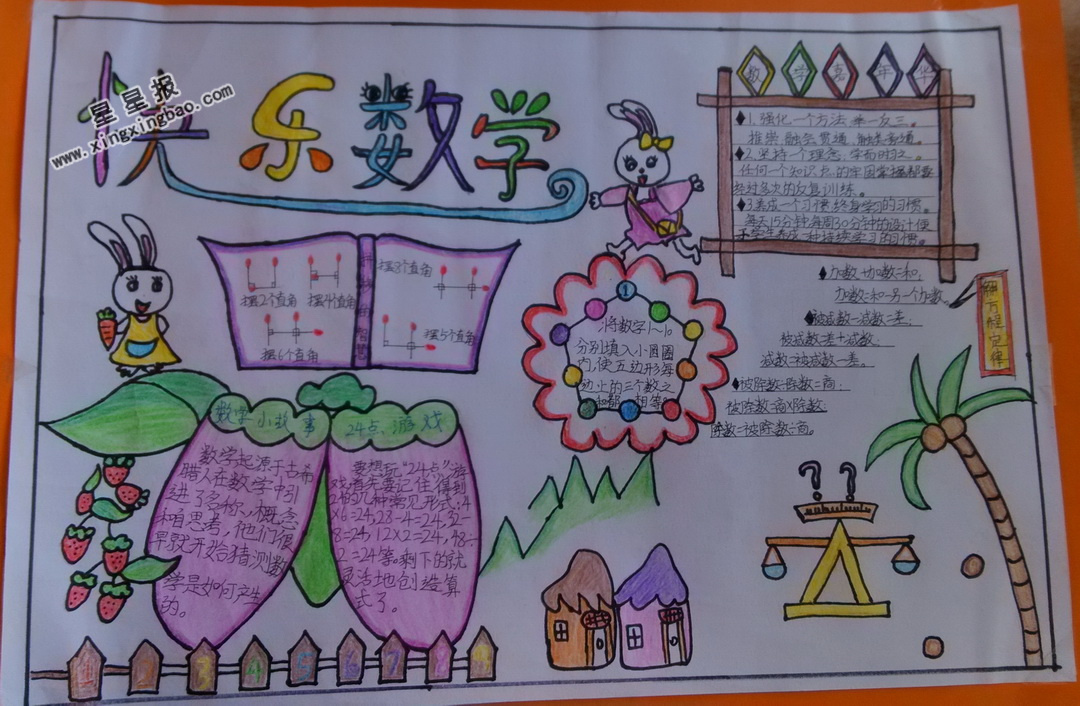 快乐数学
星星报
www.xingxingbao.com
数学嘉年华
◆1.强化一个方法,举一反三。
推崇融会贯通,触类旁通。
◆2.坚持一个理念,学而时习之。
任何一个知识点的牢固掌握都要
经过多次的反复训练。
◆3.养成一个习惯,终身学习的习惯。
每天15分钟,每周30分钟的设计便
于学生养成一种持续学习的习惯。
摆2个直角
摆4个直角
摆3个直角
摆6个直角
摆5个直角
1
将数字1~10
分别填入小圆圈
内,使五边形每
边上的三个数之
和都相等。
◆加数+加数=和.
加数=和-另一个加数。
◆被减数-减数=差.
被减数=差+减数.
减数=被减数-差.
◆被除数÷除数=商.
被除数=商×除数.
除数=被除数÷商。
解方程定律
数学小故事
数学起源于古希
腊人在数学中引
进了名称、概念
和自思考,他们很
早就开始猜测数
学是如何产生
的。
24点游戏
要想玩“24点”游
戏,首先要记住“得到
24的几种常见形式:4
×6=24,28-4=24,32-
8=24,12×2=24,48÷
2=24等。剩下的就
灵活地创造算
式了。
? ?
1 2 3 4 5 6 7 8 9